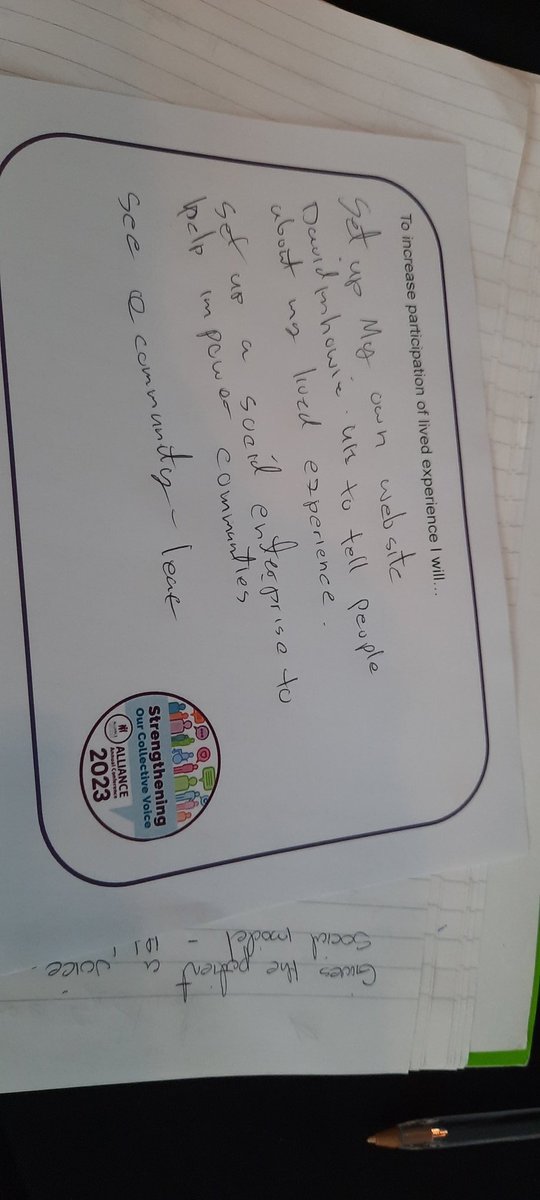 To increase participation of lived experience I will...
Set up My own website
Davidmhowie.uk to tell people
about my lived experience.
Set up a social enterprise to
help impower communties
see @ community - leave
Strengthening
Our Collective Voice
ALLIANCE
Annual Conference
2023
Social model -
Gives the patient a voice.